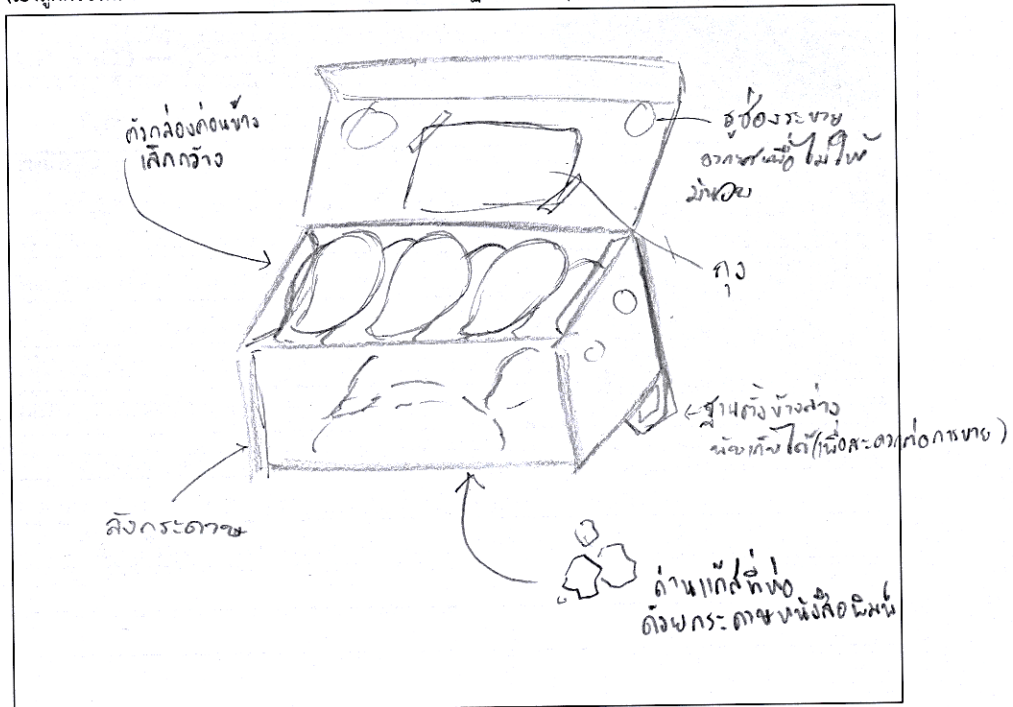 ตัวกล่องค่อนข้าง
เล็กกว้าง
รูช่องระบาย
อากาศเพื่อไม่ให้
มันอบ
ถุง
ฐานตั้งข้างล่าง
พับเก็บได้ (เพื่อสะดวกต่อการขาย)
ลังกระดาษ
ถ่านแก๊สที่ห่อ
ด้วยกระดาษหนังสือพิมพ์